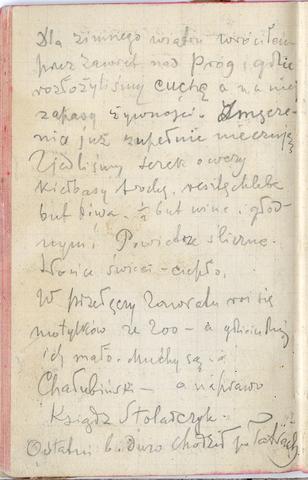 Dla zimnego wiatru wróciłem
przez Zawrat nad próg, gdzie
rozłożyliśmy cuchę a na niej
zapasy żywności. Zmęcze-
nia już zupełnie nie czuję
Zjedliśmy serek owczy
kiełbasy trochę, resztę chleba
but piwa. ½ but wina i głod
nymi! Powietrze śliczne.
Słońce świeci – ciepło.
W przełęczy Zawratu roi się
motylków ze 200 – a gdzieindziej
ich mało. muchy są i
Chałubiński – a naprawo
Ksiądz Stolarczyk.
Ostatni b. dużo chodził po Tatrach.